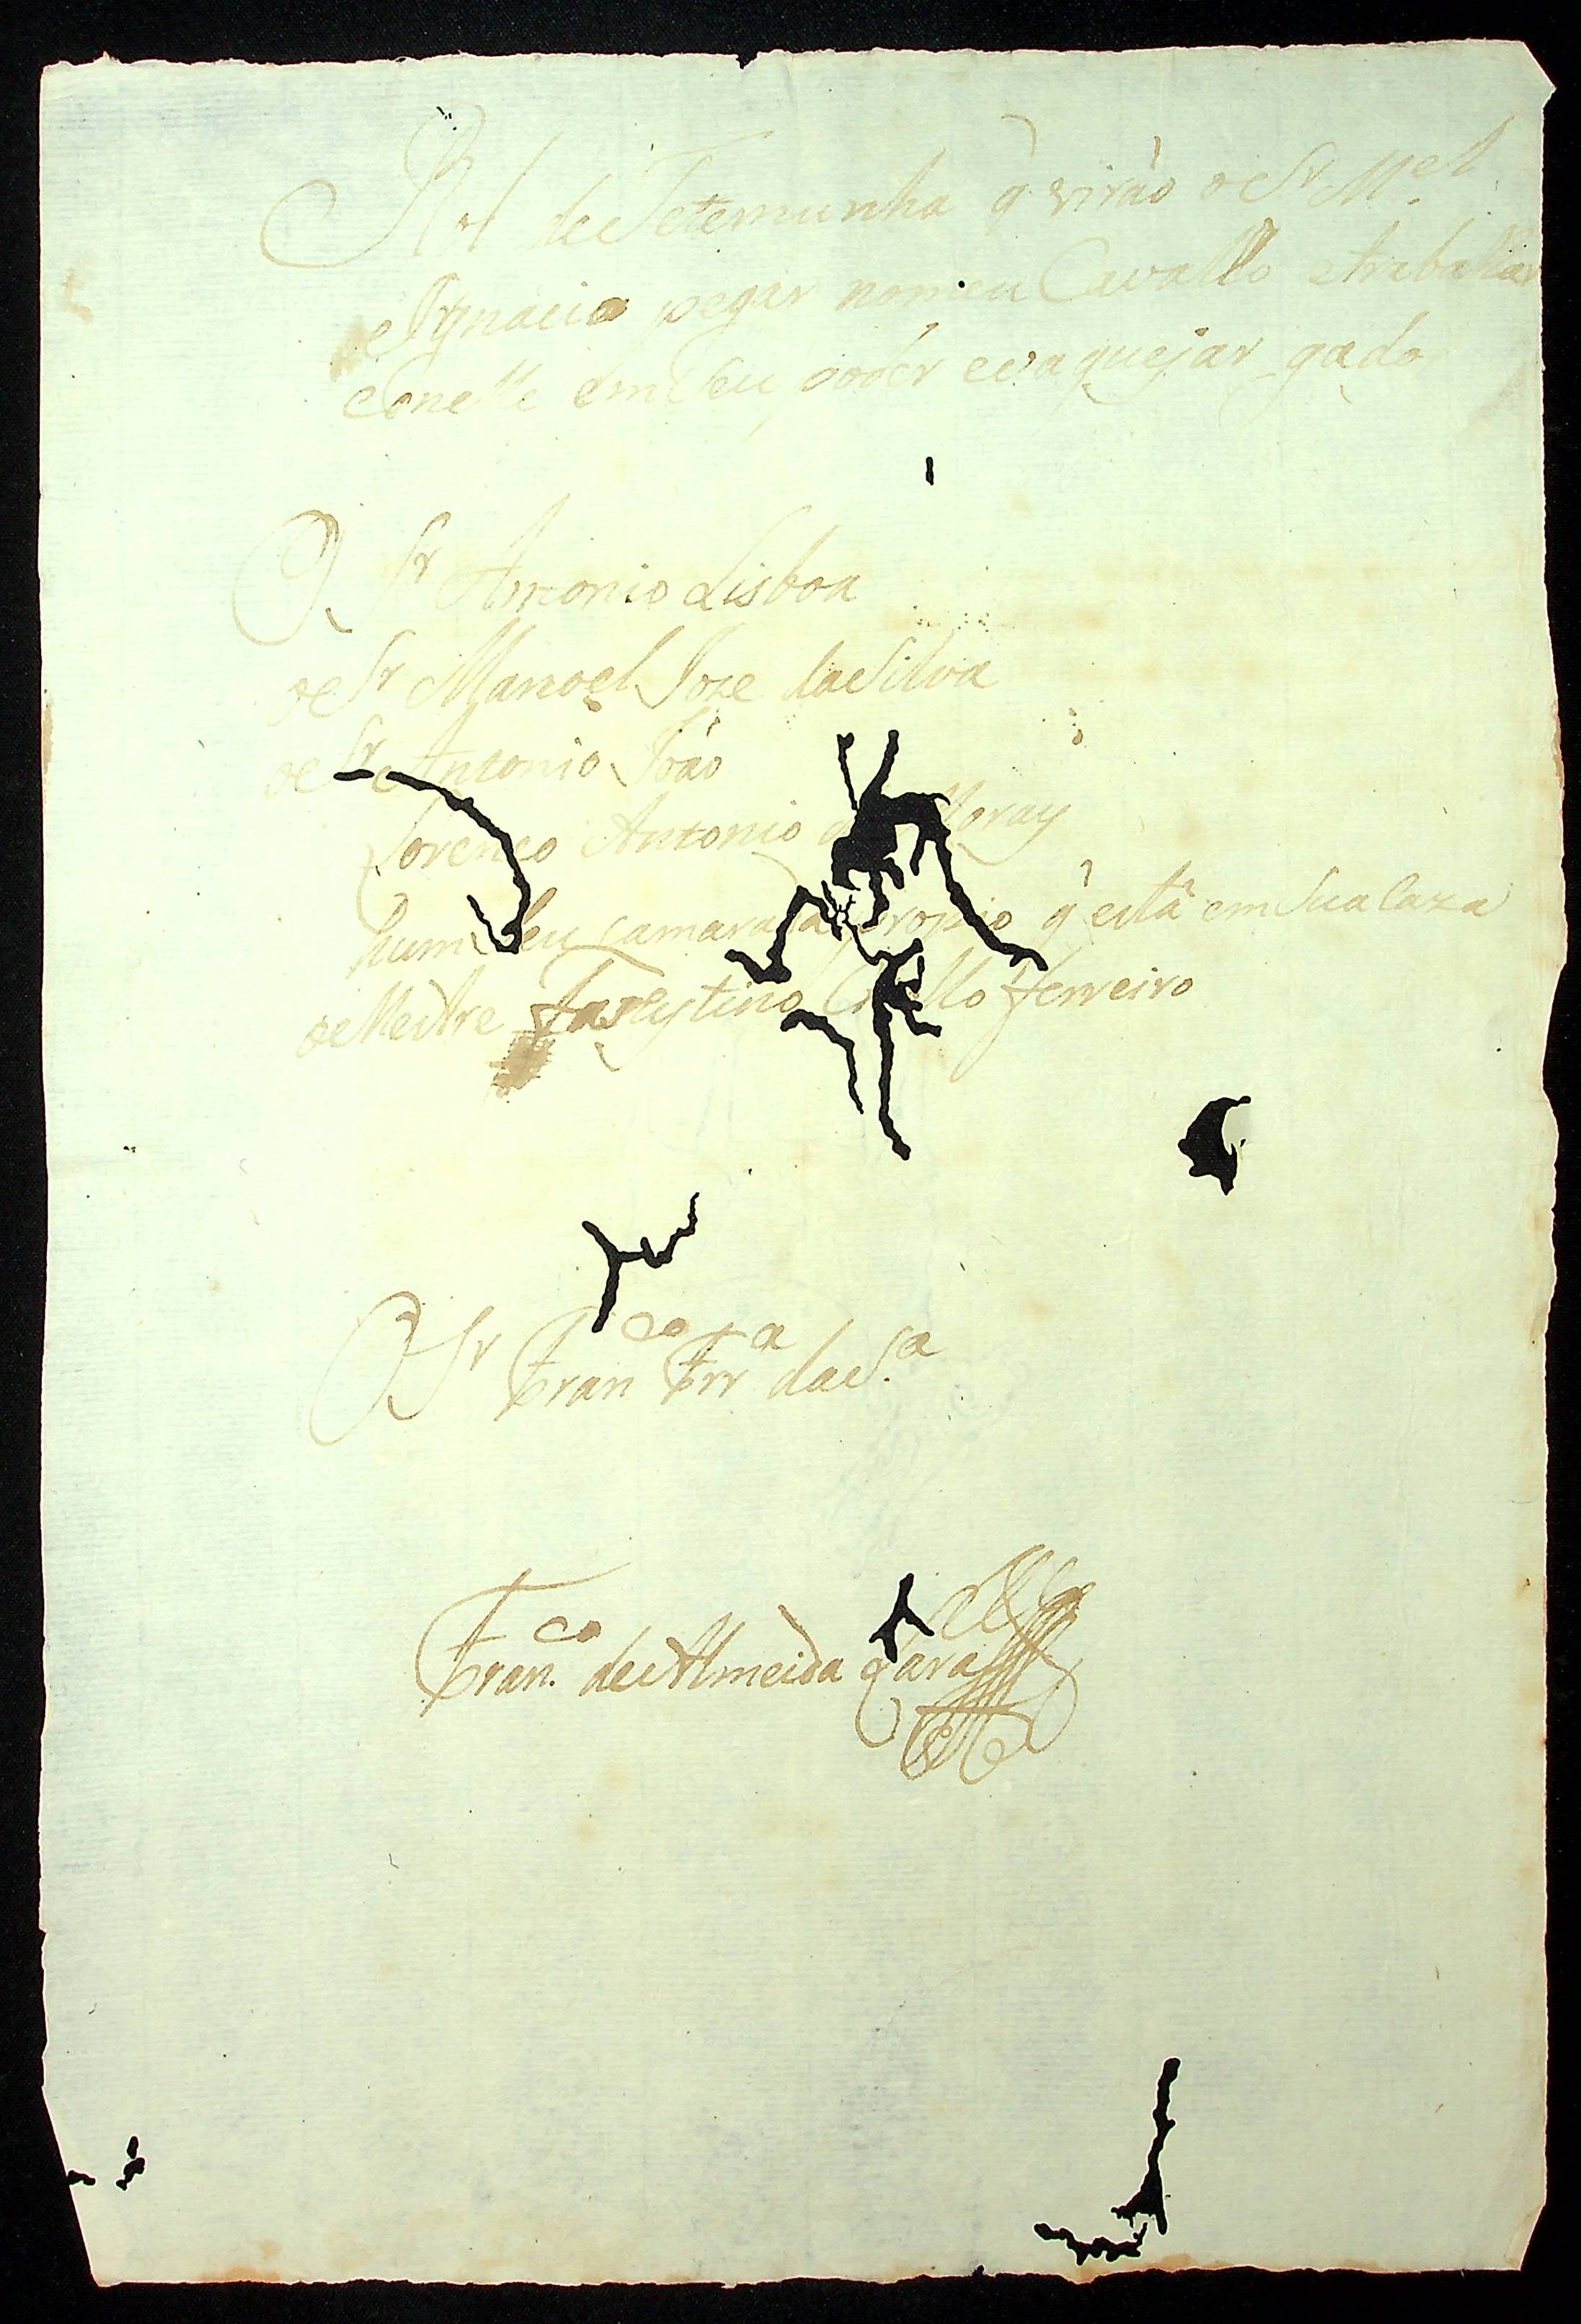 Rol de Tetemunha q̃ virão o Sr. Mel.
e Ignacio pegar no meu Cavallo e trabalhar
Conelle em Seu poder evaquejar gado
O Sr Antonio Lisboa
o Sr Manoel Joze da Silva
o Sr Antonio João
Lorenco Antonio de Moray
hum Seu camarada propio q̃ está em Sua Caza
o Mestre Ferreiro
O Sr Franco Frra da S.a
Fran.co de Almeida Lara